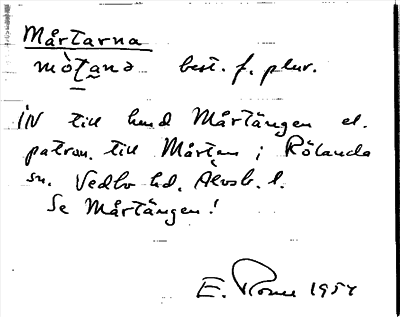 Mårtarna
mòtana best. f. plur.
IN till hmd Mårtängen el.
patron. till Mårten i Rölanda
sn. Vedbo hd. Älvsb. l.
Se Mårtängen!
E. 1957